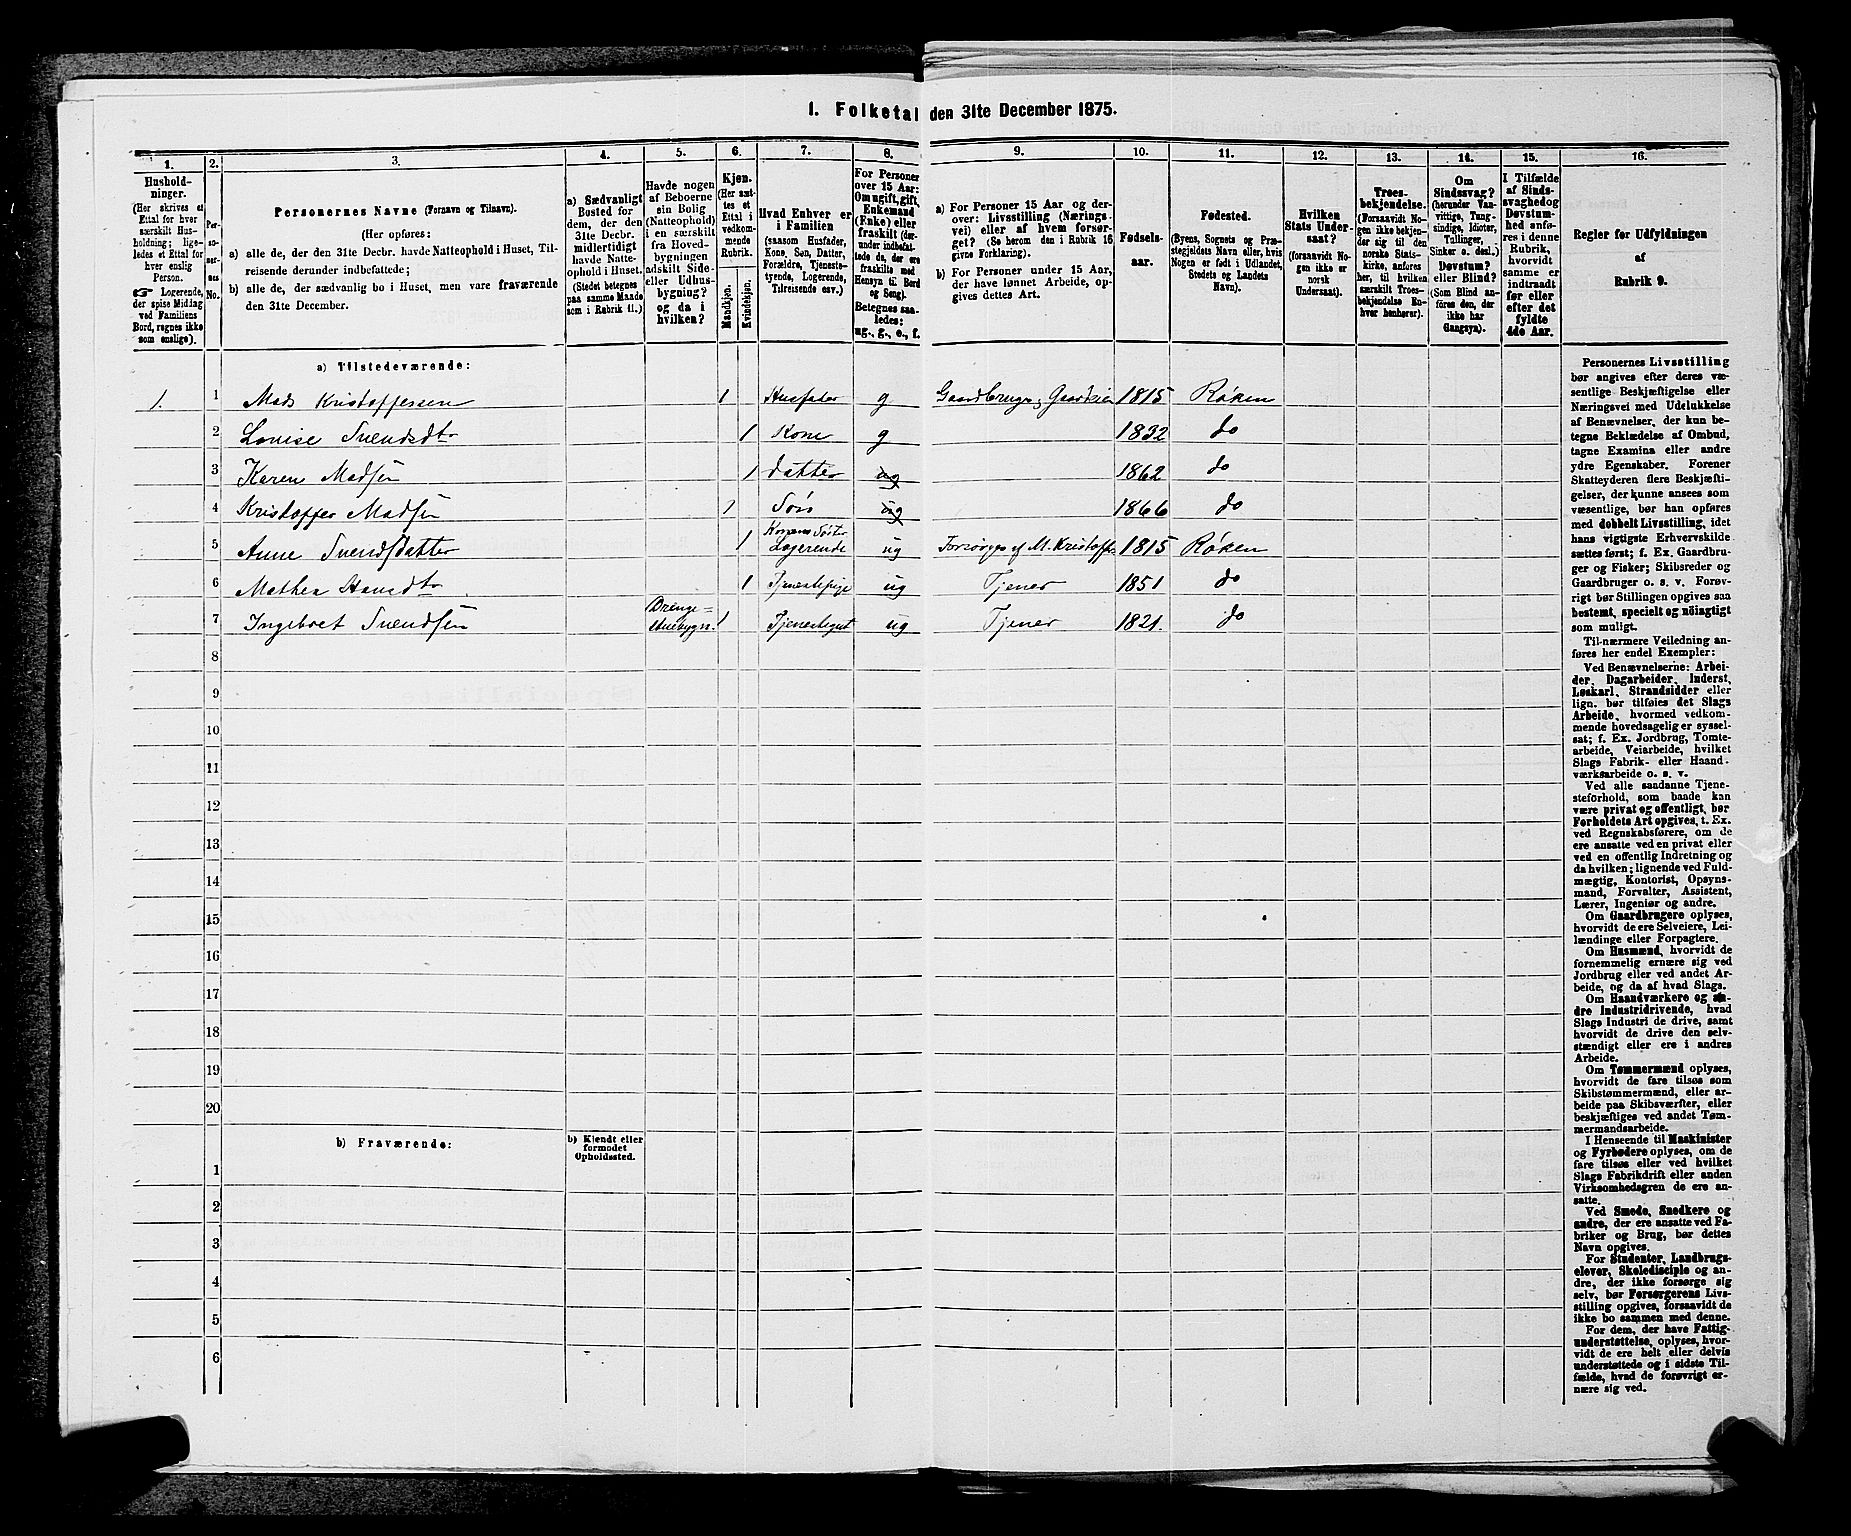 1. Folketal den 31te December 1875.
1. 2. 3. 4. 5. 6. 7. 8. 9. 10. 11. 12. 13. 14. 15. 16.
Hushold-
ninger.
(Her skrives et
Ettal for hver
særskilt Hus-
holdning; lige-
ledes et Ettal for
hver enslig
Person.
☞ Logerende,
der spise Middag
ved Familiens
Bord, regnes ikke
som enslige).
Per-
so-
ner-
nes
No.
Personernes Navne (Fornavn og Tilnavn).
(Her opføres:
a) alle de, der den 31te Decbr. havde Natteophold i Huset, Til-
reisende derunder indbefattede;
b) alle de, der sædvanlig bo i Huset, men vare fraværende
den 31te December.
a) Sædvanligt
Bosted for
dem, der den
31te Decbr.
midlertidigt
havde Natte-
ophold i Huset.
(Stedet betegnes
paa samme Maade
som i Rubrik 11.)
Havde nogen
af Beboerne
sin Bolig
(Natteophold)
i en særskilt
fra Hoved-
bygningen
adskilt Side-
eller Udhus-
bygning?
og da i
hvilken?
Kjøn.
(Her sæt-
tes et
Ettal i
vedkom-
mende
Rubrik.
Mandkjøn.
Kvindekjøn.
Hvad Enhver er
i Familien
(saasom Husfader,
Kone, Søn, Datter,
Forældre, Tjeneste-
tyende, Logerende,
Tilreisende osv.)
For Personer
over 15 Aar:
Om ugift, gift,
Enkemand
(Enke) eller
fraskilt (der-
under indbefat-
tede de, der ere
fraskilte med
Hensyn til Bord
og Seng).
Betegnes saa-
ledes:
ug., g., e., f.
a) For Personer 15 Aar og der-
over: Livsstilling (Nærings-
vei) eller af hvem forsør-
get? (Se herom den i Rubrik 16
givne Forklaring).
b) For Personer under 15 Aar,
der have lønnet Arbeide, op-
gives dettes Art.
Fødsels-
aar.
Fødested.
(Byens, Sognets og Præ-
stegjeldets Navn eller, hvis
Nogen er født i Udlandet,
Stedets og Landets
Navn).
Hvilken
Stats Under-
saat?
(forsaavidt No-
gen ikke er
norsk
Undersaat).
Troes-
bekjendelse.
(Forsaavidt No-
gen ikke bekjen-
der sig til den
norske Stats-
kirke, anføres
her, til hvilken
særskilt Troes-
bekjendelse En-
hver henhører).
Om
Sindssvag?
(herunder Van-
vittige, Tung-
sindige, Idioter,
Tullinger,
Sinker o. desl.)
Døvstum?
eller Blind?
(Som Blind an-
føres den, der
ikke har
Gangsyn).
I Tilfælde
af Sinds-
svaghed og
Døvstum-
hed anfø-
res i denne
Rubrik,
hvorvidt
samme er
indtraadt
før eller
efter det
fyldte
4de Aar.
Regler for Udfyldningen
af
Rubrik 9.
a) Tilstedeværende:
1. 1 Mads Kristoffersen 1 Husfader g Gaardbruger, Gaardeier 1815 Røken
2 Lovise Svendsdtr 1 Kone g 1832 do
3 Karen Madsen 1 Datter ug 1862 do
4 Kristoffer Madsen 1 Søn ug 1866 do
5 Anne Svendsdatter 1 Konens Søster Logerende ug Forsørges af M. Kristoffs. 1815 Røken
6 Mathea Hansdtr 1 Tjenestepige ug Tjener 1851 do
7 Ingebret Svendsen Drenge= stuebygn. 1 Tjenestegut ug Tjener 1821. do
8
9
10
11
12
13
14
15
16
17
18
19
20
b) Fraværende: b) Kjendt eller
formodet
Opholdssted.
1
2
3
4
5
6
Personernes Livsstilling
bør angives efter deres væ-
sentlige Beskjæftigelse eller
Næringsvei med Udelukkelse
af Benævnelser, der kun be-
tegne Beklædelse af Ombud,
tagne Examina eller andre
ydre Egenskaber. Forener
Skatteyderen flere Beskjæfti-
gelser, der kunne ansees som
væsentlige, bør han opføres
med dobbelt Livsstilling, idet
hans vigtigste Erhvervskilde
sættes først; f. Ex. Gaardbru-
ger og Fisker; Skibsreder og
Gaardbruger o. s. v. Forøv-
rigt bør Stillingen opgives saa
bestemt, specielt og nøiagtigt
som muligt.
Til nærmere Veiledning an-
føres her endel Exempler:
Ved Benævnelserne: Arbei-
der, Dagarbeider, Inderst,
Løskarl, Strandsidder eller
lign. bør tilføies det Slags
Arbeide, hvormed vedkom-
mende hovedsagelig er syssel-
sat; f. Ex. Jordbrug, Tomte-
arbeide, Veiarbeide, hvilket
Slags Fabrik- eller Haand-
værksarbeide o. s. v.
Ved alle saadanne Tjene-
steforhold, som baade kan
være privat og offentligt, bør
Forholdets Art opgives, t. Ex.
ved Regnskabsførere, om de
ere ansatte ved en privat eller
ved en offentlig Indretning og
da hvilken; lignende ved Fuld-
mægtig, Kontorist, Opsyns-
mand, Forvalter, Assistent,
Lærer, Ingeniør og andre.
Om Gaardbrugere oplyses,
hvorvidt de ere Selveiere, Lei-
lændinge eller Forpagtere.
Om Husmænd, hvorvidt de
fornemmelig ernære sig ved
Jordbrug eller ved andet Ar-
beide, og da af hvad Slags.
Om Haandværkere og an-
dre Industridrivende, hvad
Slags Industri de drive, samt
hvorvidt de drive den selv-
stændigt eller ere i andres
Arbeide.
Om Tømmermænd oplyses,
hvorvidt de fare tilsøs som
Skibstømmermænd, eller ar-
beide paa Skibsværfter, eller
beskjæftiges ved andet Tøm-
mermandsarbeide.
I Henseende til Maskinister
og Fyrbødere oplyses, om de
fare tilsøs eller ved hvilket
Slags Fabrikdrift eller anden
Virksomhedsgren de ere an-
satte.
Ved Smede, Snedkere og
andre, der ere ansatte ved Fa-
briker og Brug, bør dettes
Navn opgives.
For Studenter, Landbrugs-
elever, Skoledisciple og an-
dre, der ikke forsørge sig
selv, bør Forsørgerens Livs-
stilling opgives, forsaavidt de
ikke bo sammen med denne.
For dem, der have Fattig-
understøttelse, oplyses, hvor-
vidt de ere helt eller delvis
understøttede og i sidste Til-
fælde, hvad de forøvrigt er-
nære sig ved.